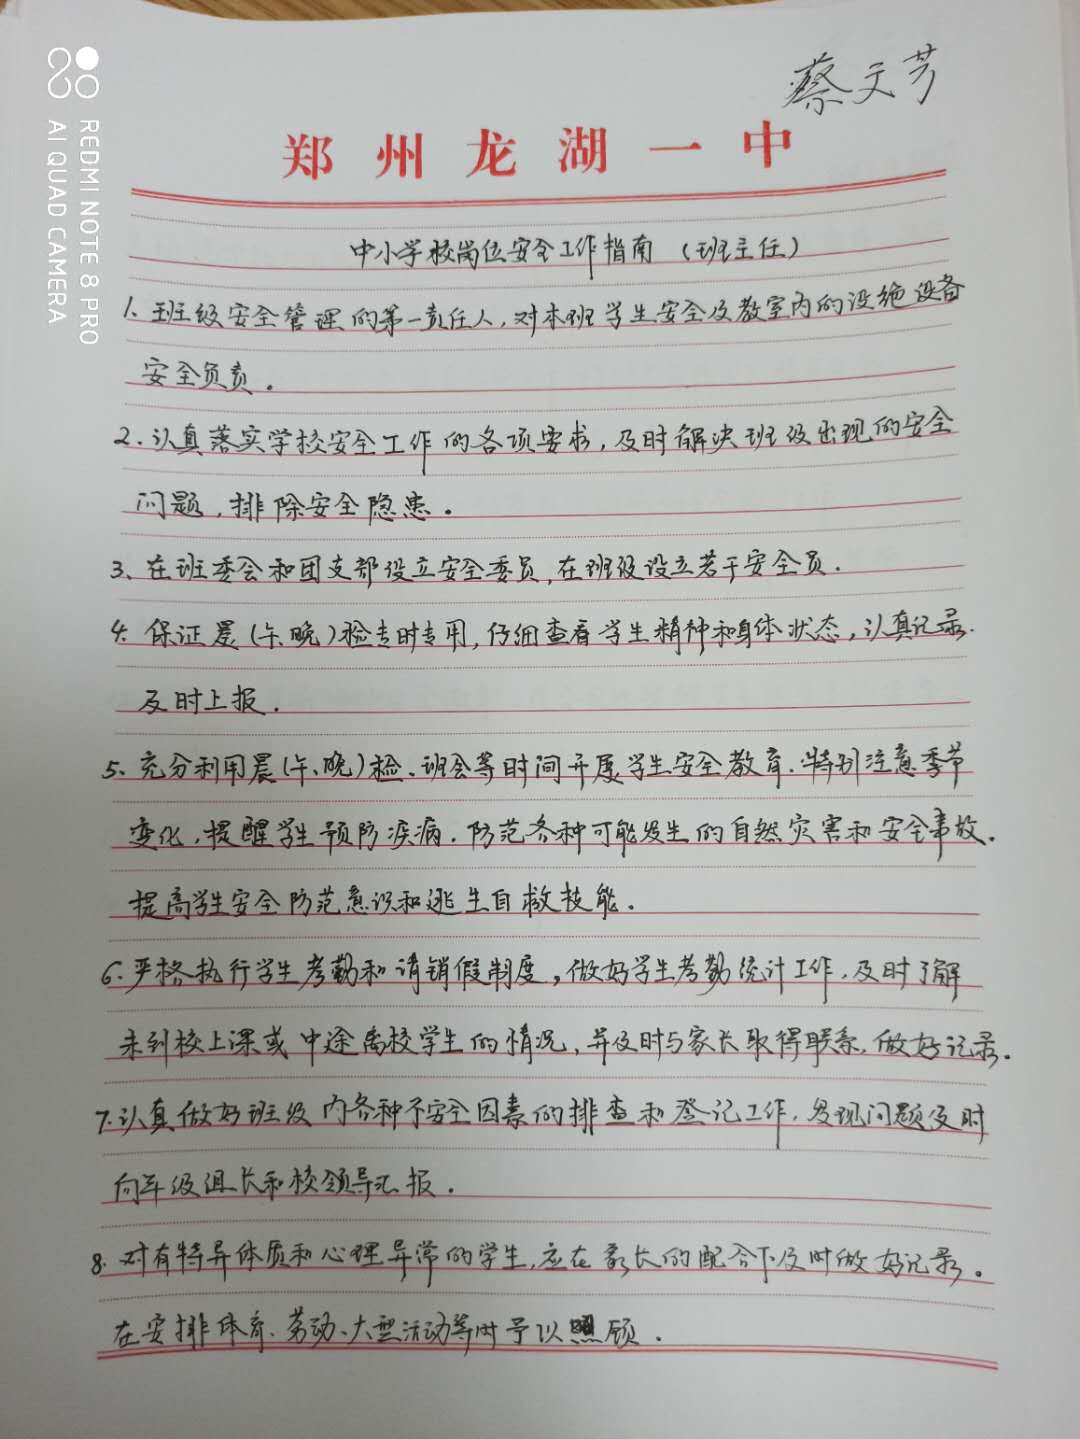 蔡文芳
郑州龙湖一中
中小学校岗位安全工作指南（班主任）
1、班级安全管理的第一责任人，对本班学生安全及教室内的设施设备
安全负责。
2.认真落实学校安全工作的各项要求，及时解决班级出现的安全
问题，排除安全隐患。
3、在班委会和团支部设立安全委员，在班级设立若干安全员.
4.保证晨（午、晚）检专时专用，仔细查看学生精神和身体状态，认真记录.
及时上报.
5、充分利用晨（午、晚）检、班会等时间开展学生安全教育.特别注意季节
变化，提醒学生预防疾病.防范各种可能发生的自然灾害和安全事故.
提高学生安全防范意识和逃生自救技能.
6.严格执行学生考勤和请销假制度，做好学生考勤统计工作.及时了解
未到校上课或中途离校学生的情况，并及时与家长取得联系，做好记录.
7.认真做好班级内各种不安全因素的排查和登记工作.发现问题及时
向年级组长和校领导汇报.
8.对有特异体质和心理异常的学生，应在家长的配合下及时做好记录。
在安排体育、劳动、大型活动等时予以照顾.
REDMI NOTE 8 PRO
AI QUAD CAMERA